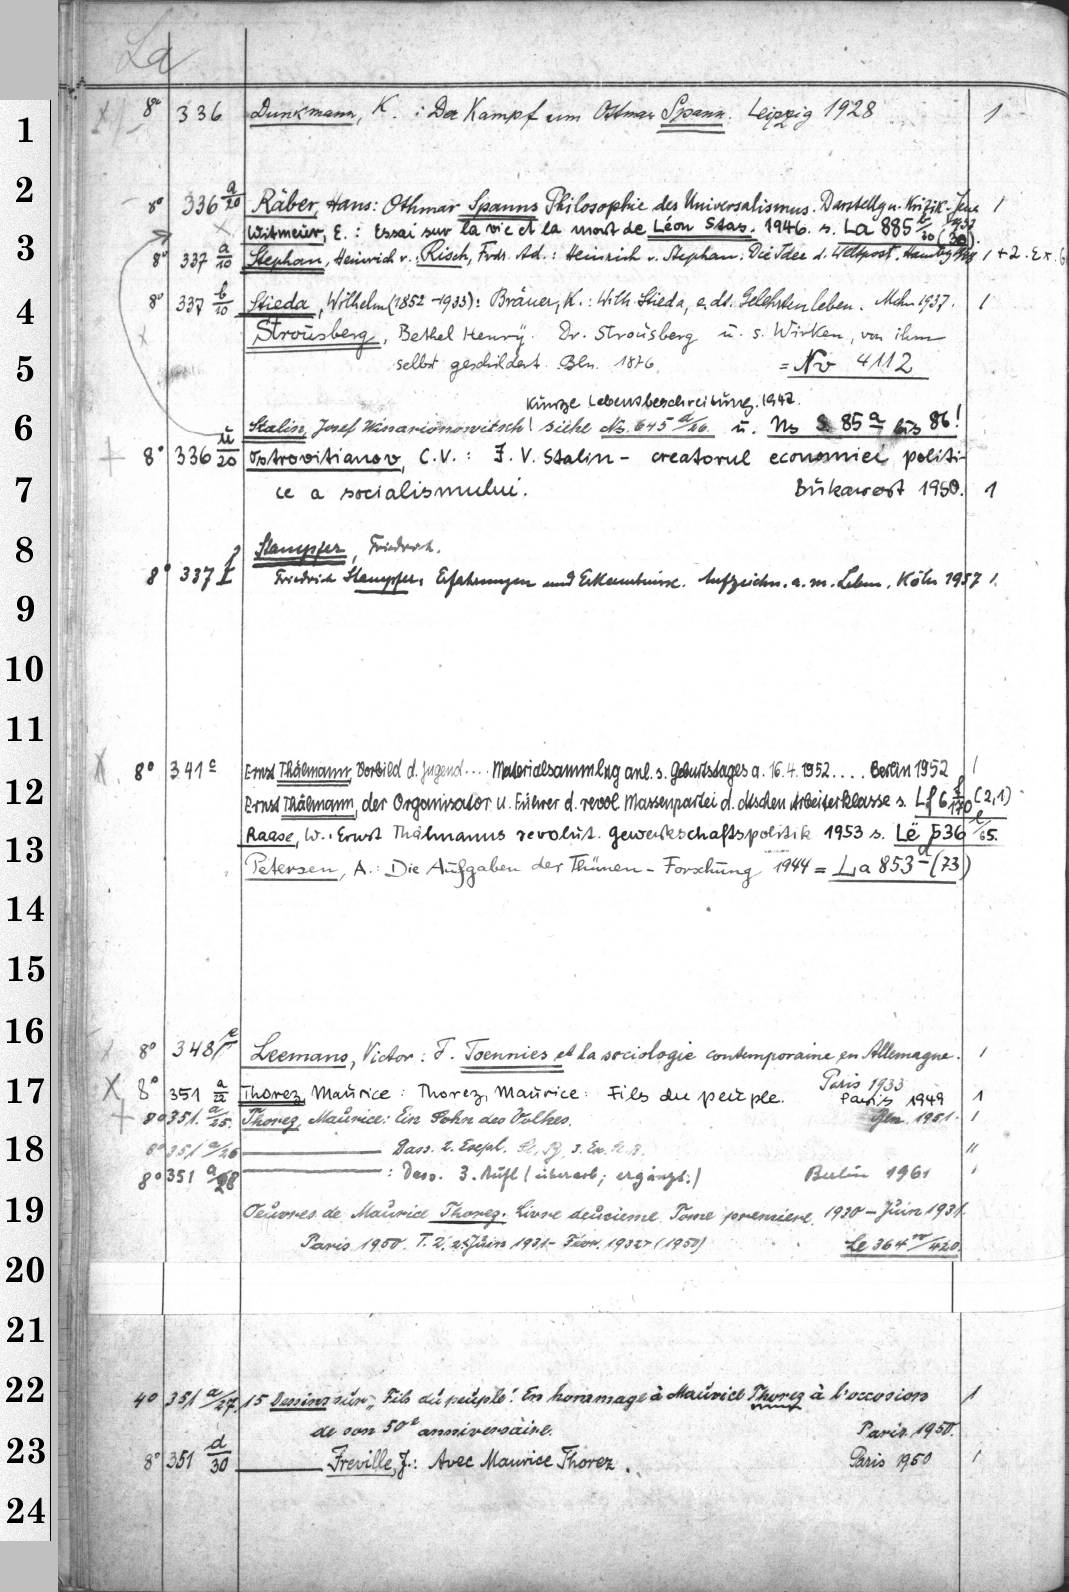 La
1 8° 336 Dunkmann, K. : Der Kampf um Othmar Spann. Leipzig 1928 1
2 8° 336 a/20 Räber, Hans: Othmar Spanns Philosophie des Universalismus. Darstellg u. Kritik. Jena 1937 1
Witmeur, E. : Essai sur la vie et la mort de Léon Stas. 1946. s. La 885 /20 (30).
3 8° 337 a/10 Stephan, Heinrich v. : Risch, Frdr. Ad. : Heinrich v. Stephan. Die Idee d. Weltpost. Hamburg 1 + 2. Ex.
4 8° 337 b/10 Stieda, Wilhelm (1852-1933): Bräuer, K. : Wilh. Stieda, e. dt. Gelehrtenleben. Mchn 1937. 1
Strousberg, Bethel Henry. Dr. Strousberg u. s. Wirken, von ihm
5 selbst geschildert. Bln. 1876. = Nv 4112
Kurze Lebensbeschreibung. 1947.
6 Stalin, Josef Winarionowitsch siehe Ns. 645 a/26 u. Ns S. 85 a bis 86!
8° 336 u/20 Ostrovitianov, C.V. : I. V. Stalin - creatorul economiei politi-
7 ce a socialismului. Bukarest 1950. 1
8 Stampfer, Friedrich.
8° 337 f Friedrich Stampfer, Erfahrungen und Erkenntnisse. Aufzeichn. a. m. Leben. Köln 1957 1.
9
10
11
12 8° 341 c Ernst Thälmann, Vorbild d. Jugend .... Materialsammlung anl. s. Geburtstages a. 16.4.1952 .... Berlin 1952 1
Ernst Thälmann, der Organisator u. Führer d. revol Massenpartei d. dtschen Arbeiterklasse s. Lf 6 f/170 (2,1)
13 Raase, W. : Ernst Thälmanns revolut. Gewerkschaftspolitik 1953 s. Lë 536 l/65.
Petersen, A. : Die Aufgaben der Thünen - Forschung 1944 = La 853 d (73)
14
15
16 8° 348 e Leemans, Victor : F. Toennies et la sociologie contemporaine en Allemagne. 1
17 Paris 1933
8° 351 a/22 Thorez, Maurice : Thorez, Maurice : Fils du peuple. Paris 1949 1
8° 351 a/25. Thorez, Maurice: Ein Sohn des Volkes. Bln. 1951. 1
18 8° 351 a/26 Dass. 2. Exepl. 3. Ex. "
8° 351 a/28 : Dass. 3. Aufl (überarb; ergänzt.) Berlin 1961 1
19 Oeuvres de Maurice Thorez. Livre deuxieme Tome premiere. 1930 - Juin 1931.
Paris 1950. T. 2. Juin 1931 - Févr. 1932 (1950) Le 364 /420.
20
21
22 4° 351 a/27. 15 Dessins sur „Fils du peuple! En hommage à Maurice Thorez à l'occasion 1
de son 50e anniversaire. Paris, 1950.
23 8° 351 d/30 Freville, J. : Avec Maurice Thorez. Paris 1950 1
24